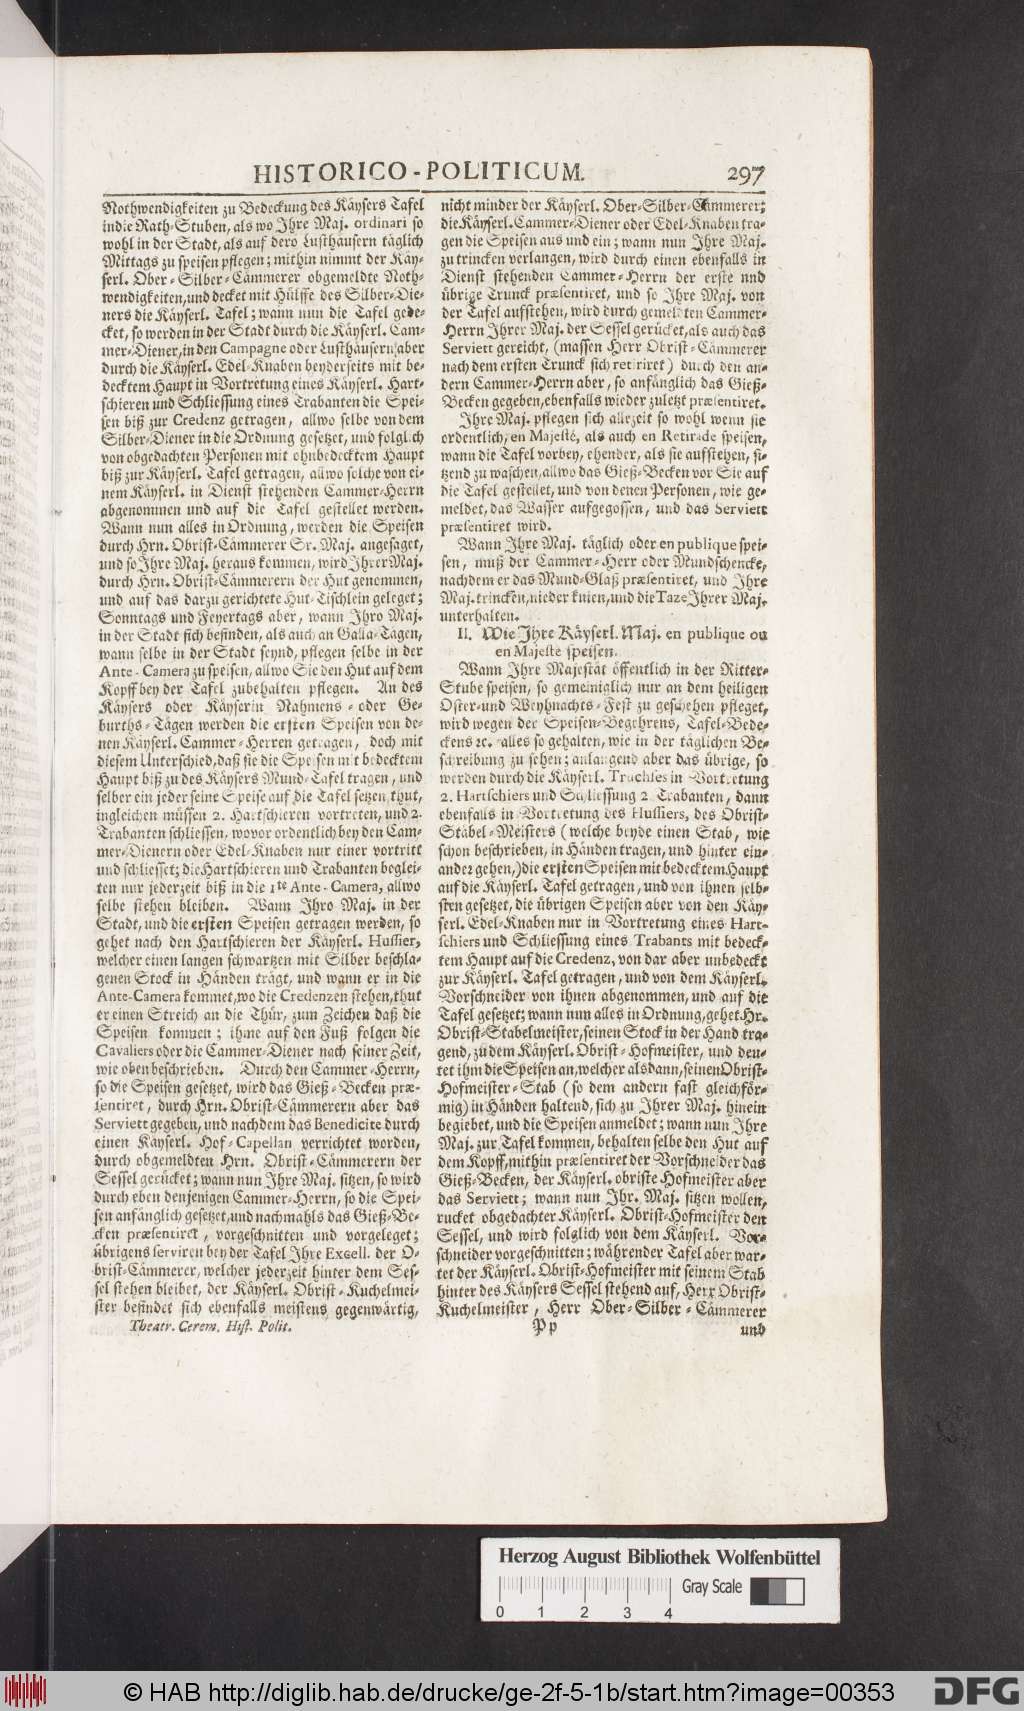 HISTORICO-POLITICUM. 297
Nothwendigkeiten zu Bedeckung des Käysers Tafel
in die Rath-Stuben, als wo Ihre Maj. ordinari so
wohl in der Stadt, als auf dero Lusthäusern täglich
Mittags zu speisen pflegen; mithin nimmt der Käy-
serl. Ober-Silber-Cämmerer obgemeldte Noth-
wendigkeiten, und decket mit Hülffe des Silber-Die-
ners die Käyserl. Tafel; wann nun die Tafel gede-
cket, so werden in der Stadt durch die Käyserl. Cam-
mer-Diener, in den Campagne oder Lusthäusern aber
durch die Käyserl. Edel-Knaben beyderseits mit be-
decktem Haupt in Vortretung eines Käyserl. Hart-
schieren und Schliessung eines Trabanten die Spei-
sen biß zur Credenz getragen, allwo selbe von dem
Silber-Diener in die Ordnung gesetzet, und folglich
von obgedachten Personen mit ohnbedecktem Haupt
biß zur Käyserl. Tafel getragen, allwo solche von ei-
nem Käyserl. in Dienst stehenden Cammer-Herrn
abgenommen und auf die Tafel gestellet werden.
Wann nun alles in Ordnung, werden die Speisen
durch Hrn. Obrist-Cämmerer Sr. Maj. angesaget,
und so Ihre Maj. heraus kommen, wird Ihrer Maj.
durch Hrn. Obrist-Cämmerern der Hut genommen,
und auf das darzu gerichtete Hut-Tischlein geleget;
Sonntags und Feyertags aber, wann Ihro Maj.
in der Stadt sich befinden, als auch an Galla-Tägen,
wann selbe in der Stadt seynd, pflegen selbe in der
Ante-Camera zu speisen, allwo Sie den Hut auf dem
Kopff bey der Tafel zubehalten pflegen. An des
Käysers oder Käyserin Nahmens- oder Ge-
burths-Tägen werden die ersten Speisen von de-
nen Käyserl. Cammer-Herren getragen, doch mit
diesem Unterschied, daß sie die Speisen mit bedecktem
Haupt biß zu des Käysers Mund-Tafel tragen, und
selber ein jeder seine Speise auf die Tafel setzen thut,
ingleichen müssen 2. Hartschieren vortreten, und 2.
Trabanten schliessen, wovor ordentlich bey den Cam-
mer-Dienern oder Edel-Knaben nur einer vortritt
und schliesset; die Hartschieren und Trabanten beglei-
ten nur jederzeit biß in die 1te Ante-Camera, allwo
selbe stehen bleiben. Wann Ihro Maj. in der
Stadt, und die ersten Speisen getragen werden, so
gehet nach den Hartschieren der Käyserl. Hussier,
welcher einen langen schwartzen mit Silber beschla-
genen Stock in Händen trägt, und wann er in die
Ante-Camera kommet, wo die Credenzen stehen, thut
er einen Streich an die Thür, zum Zeichen daß die
Speisen kommen; ihme auf den Fuß folgen die
Cavaliers oder die Cammer-Diener nach seiner Zeit,
wie oben beschrieben. Durch den Cammer-Herrn,
so die Speisen gesetzet, wird das Gieß-Becken præ-
sentiret, durch Hrn. Obrist-Cämmerern aber das
Serviett gegeben, und nachdem das Benedicite durch
einen Käyserl. Hof-Capellan verrichtet worden,
durch obgemeldten Hrn. Obrist-Cämmerern der
Sessel gerücket; wann nun Ihre Maj. sitzen, so wird
durch eben denjenigen Cammer-Herrn, so die Spei-
sen anfänglich gesetzet, und nachmahls das Gieß-Be-
cken præsentiret, vorgeschnitten und vorgeleget;
übrigens serviren bey der Tafel Ihre Excell. der O-
brist-Cämmerer, welcher jederzeit hinter dem Ses-
sel stehen bleibet, der Käyserl. Obrist-Kuchelmei-
ster befindet sich ebenfalls meistens gegenwärtig,
Theatr. Cerem. Hist. Polit.
nicht minder der Käyserl. Ober-Silber-Cämmerer;
die Käyserl. Cammer-Diener oder Edel-Knaben tra-
gen die Speisen aus und ein; wann nun Ihre Maj.
zu trincken verlangen, wird durch einen ebenfalls in
Dienst stehenden Cammer-Herrn der erste und
übrige Trunck præsentiret, und so Ihre Maj. von
der Tafel aufstehen, wird durch gemeldten Cammer-
Herrn Ihrer Maj. der Sessel gerücket, als auch das
Serviett gereicht, (massen Herr Obrist-Cämmerer
nach dem ersten Trunck sich retiriret) durch den an-
dern Cammer-Herrn aber, so anfänglich das Gieß-
Becken gegeben, ebenfalls wieder zuletzt præsentiret.
Ihre Maj. pflegen sich allezeit so wohl wenn sie
ordentlich, en Majesté, als auch en Retirade speisen,
wann die Tafel vorbey, ehender, als sie aufstehen, si-
tzend zu waschen, allwo das Gieß-Becken vor Sie auf
die Tafel gestellet, und von denen Personen, wie ge-
meldet, das Wasser aufgegossen, und das Serviett
præsentiret wird.
Wann Ihre Maj. täglich oder en publique spei-
sen, muß der Cammer-Herr oder Mundschencke,
nachdem er das Mund-Glaß præsentiret, und Ihre
Maj. trincken, nieder knien, und die Taze Ihrer Maj.
unterhalten.
II. Wie Ihre Käyserl. Maj. en publique ou
en Majesté speisen.
Wann Ihre Majestät öffentlich in der Ritter-
Stube speisen, so gemeiniglich nur an dem heiligen
Oster- und Weyhnachts-Fest zu geschehen pfleget,
wird wegen der Speisen-Begehrens, Tafel-Bede-
ckens ec. alles so gehalten, wie in der täglichen Be-
schreibung zu sehen; anlangend aber das übrige, so
werden durch die Käyserl. Truchses in Vortretung
2. Hartschiers und Schliessung 2. Trabanten, dann
ebenfalls in Vortretung des Hussiers, des Obrist-
Stäbel-Meisters (welche beyde einen Stab, wie
schon beschrieben, in Händen tragen, und hinter ein-
ander gehen,) die ersten Speisen mit bedecktem Haupt
auf die Käyserl. Tafel getragen, und von ihnen selb-
sten gesetzet, die übrigen Speisen aber von den Käy-
serl. Edel-Knaben nur in Vortretung eines Hart-
schiers und Schliessung eines Trabants mit bedeck-
tem Haupt auf die Credenz, von dar aber unbedeckt
zur Käyserl. Tafel getragen, und von dem Käyserl.
Vorschneider von ihnen abgenommen, und auf die
Tafel gesetzet; wann nun alles in Ordnung, gehet Hr.
Obrist-Stabelmeister, seinen Stock in der Hand tra-
gend, zu dem Käyserl. Obrist-Hofmeister, und deu-
tet ihm die Speisen an, welcher alsdann, seinen Obrist-
Hofmeister-Stab (so dem andern fast gleichför-
mig) in Händen haltend, sich zu Ihrer Maj. hinein
begiebet, und die Speisen anmeldet; wann nun Ihre
Maj. zur Tafel kommen, behalten selbe den Hut auf
dem Kopff, mithin præsentiret der Vorschneider das
Gieß-Becken, der Käyserl. obriste Hofmeister aber
das Serviett; wann nun Ihr. Maj. sitzen wollen,
rucket obgedachter Käyserl. Obrist-Hofmeister den
Sessel, und wird folglich von dem Käyserl. Vor-
schneider vorgeschnitten; währender Tafel aber war-
tet der Käyserl. Obrist-Hofmeister mit seinem Stab
hinter des Käysers Sessel stehend auf, Herr Obrist-
Kuchelmeister, Herr Ober-Silber-Cämmerer
Pp und
Herzog August Bibliothek Wolfenbüttel
Gray Scale
0 1 2 3 4
© HAB http://diglib.hab.de/drucke/ge-2f-5-1b/start.htm?image=00353
DFG